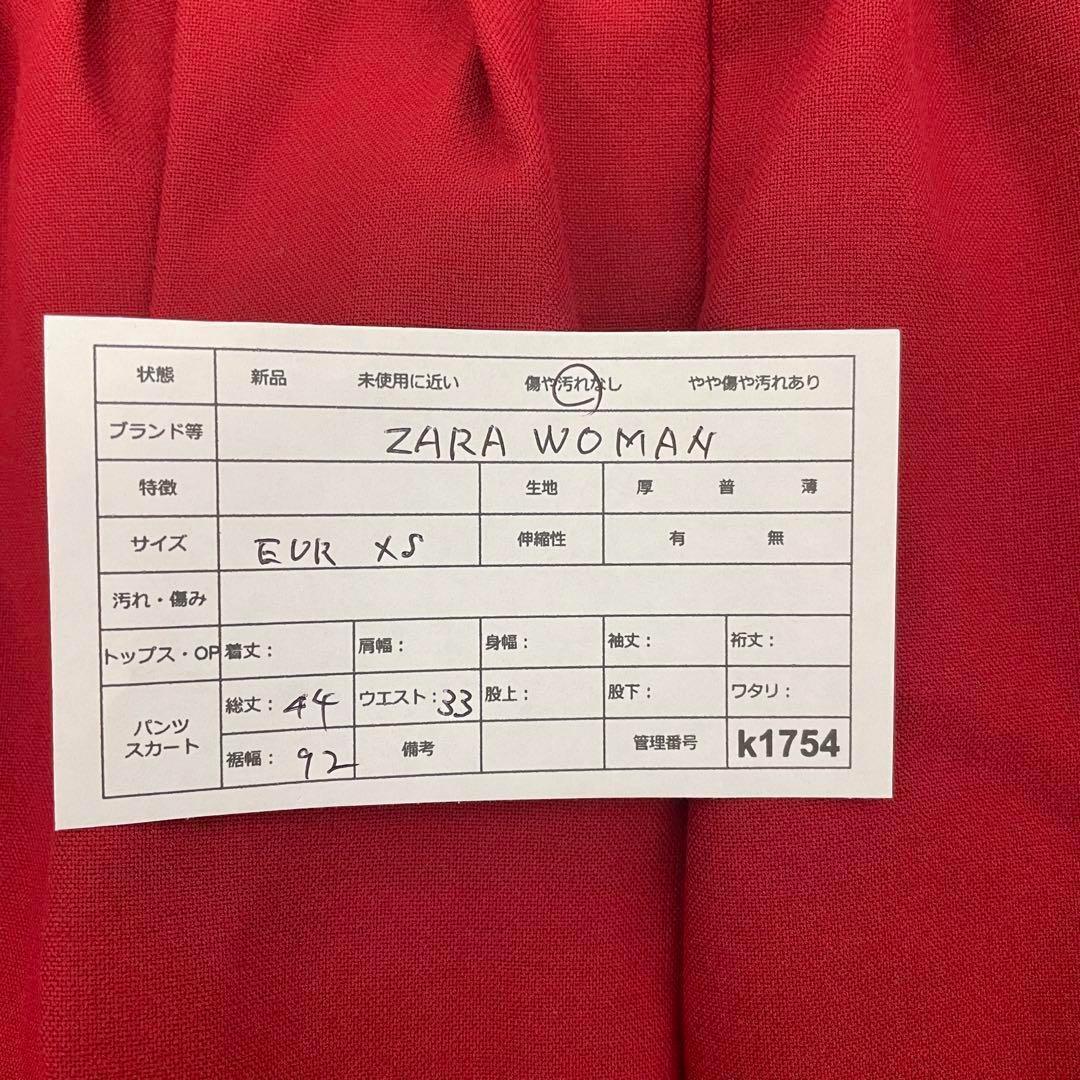 状態 新品 未使用に近い 傷や汚れなし やや傷や汚れあり
ブランド等 ZARA WOMAN
特徴 生地 厚 普 薄
サイズ EUR XS 伸縮性 有 無
汚れ・傷み
トップス・OP 着丈： 肩幅： 身幅： 袖丈： 裄丈：
パンツ スカート
総丈：44 ウエスト：33 股上： 股下： ワタリ：
裾幅：92 備考 管理番号 k1754